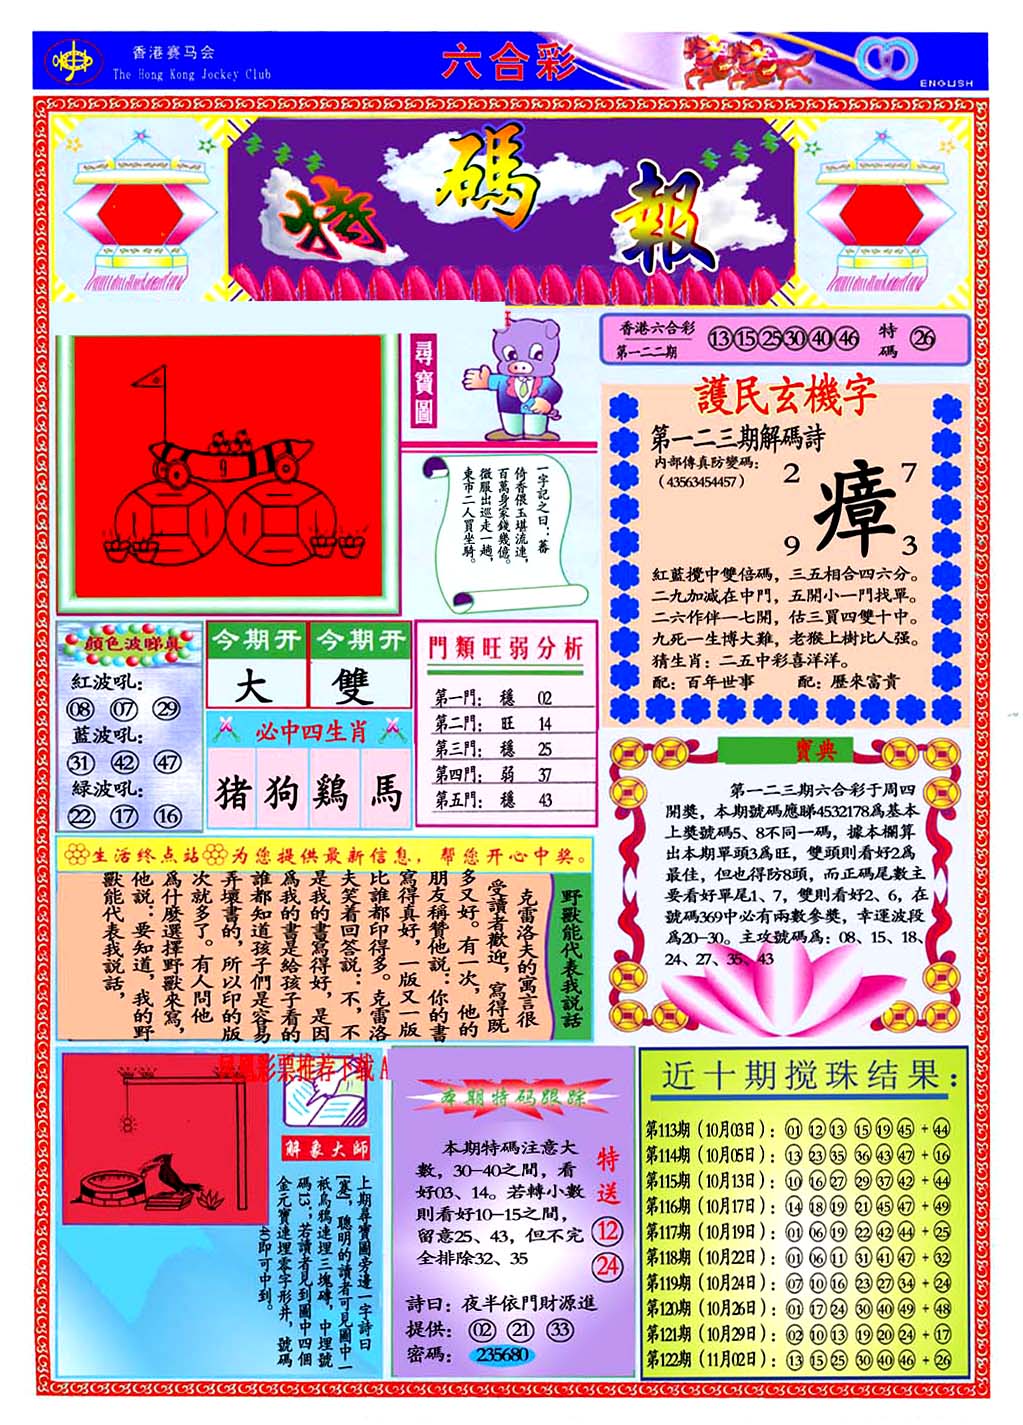 香港赛马会
The Hong Kong Jockey Club
六合彩
ENGLISH
特碼報
尋寶圖
香港六合彩
第一二二期
13 15 25 30 40 46
特碼
26
一字記之日：蕃
倚香偎玉堪流連，
百萬身家錢幾億。
微服出巡走一趟，
東市二人買坐騎。
護民玄機字
第一二三期解碼詩
内部傳真防變碼：
（43563454457）
2
7
瘴
9
3
紅藍攪中雙倍碼，三五相合四六分。
二九加减在中門，五開小一門找單。
二六作伴一七開，估三買四雙十中。
九死一生博大難，老猴上樹比人强。
猜生肖：二五中彩喜洋洋。
配：百年世事 配：歷來富貴
顔色波睇真
紅波吼：
08 07 29
蓝波吼：
31 42 47
緑波吼：
22 17 16
今期开
今期开
大
雙
必中四生肖
猪 狗 鷄 馬
門類旺弱分析
第一門： 穩 02
第二門： 旺 14
第三門： 穩 25
第四門： 弱 37
第五門： 穩 43
寶典
第一二三期六合彩于周四
開獎，本期號碼應睇4532178爲基本
上獎號碼5、8不同一碼，據本欄算
出本期單頭3爲旺，雙頭則看好2爲
最佳，但也得防8頭，而正碼尾數主
要看好單尾1、7，雙則看好2、6，在
號碼369中必有兩數參獎，幸運波段
爲20-30。主攻號碼爲：08、15、18、
24、27、35、43
生活终点站 为您提供最新信息，帮您开心中奖。
野獸能代表我說話
克雷洛夫的寓言很
受讀者歡迎，寫得既
多又好。有一次，他的
朋友稱贊他説：你的書
寫得真好，一版又一版
比誰都印得多。克雷洛
夫笑着回答説：不，不
是我的書寫得好，是因
爲我的書是給孩子看的
誰都知道孩子們是容易
弄壞書的，所以印的版
次就多了。有人問他
爲什麽選擇野獸來寫，
他説：要知道，我的野
獸能代表我説話，
彩票推荐下载 A
解象大師
上期尋寶圖旁邊一字詩曰
，聰明的讀者可見圖中一
衹烏鴉連埋三塊磚，中埋號
碼13，；若讀者見到圖中四個
金元寶連埋零字形井，號碼
40即可中到。
本期特码跟踪
本期特碼注意大
數，30-40之間，看
好03、14。若轉小數
則看好10-15之間，
留意25、43，但不完
全排除32、35
特送
12
24
詩曰：夜半依門財源進
提供： 02 21 33
密碼： 235680
近十期搅珠结果：
第113期（10月03日）：01 12 13 15 19 45 + 44
第114期（10月05日）：13 23 35 36 43 47 + 16
第115期（10月13日）：10 16 27 29 37 42 + 44
第116期（10月17日）：14 18 19 21 45 47 + 49
第117期（10月19日）：01 06 19 22 42 44 + 25
第118期（10月22日）：01 06 11 31 41 47 + 32
第119期（10月24日）：07 10 16 23 27 34 + 24
第120期（10月26日）：01 17 24 30 40 49 + 48
第121期（10月29日）：02 10 13 19 20 24 + 17
第122期（11月02日）：13 15 25 30 40 46 + 26